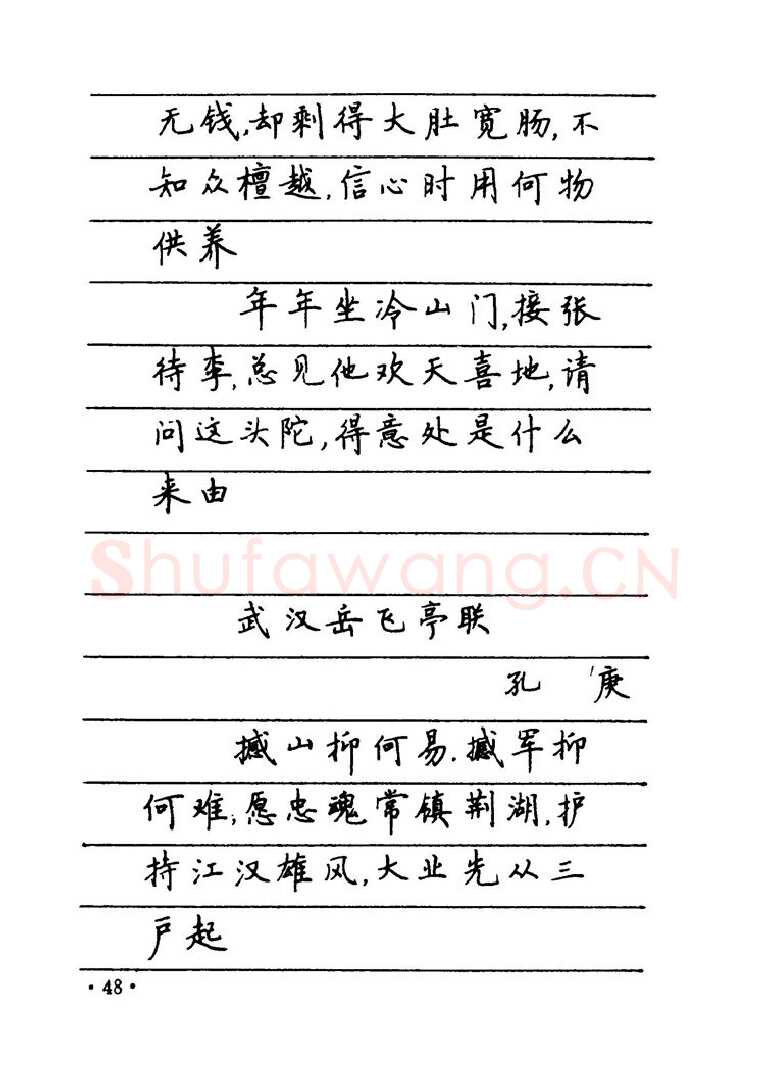 无钱,却剩得大肚宽肠,不
知众檀越,信心时用何物
供养
年年坐冷山门,接张
待李,总见他欢天喜地,请
问这头陀,得意处是什么
来由
Shufawang.CN
武汉岳飞亭联
孔 庚
撼山抑何易,撼军抑
何难,愿忠魂常镇荆湖,护
持江汉雄风,大业先从三
户起
·48·